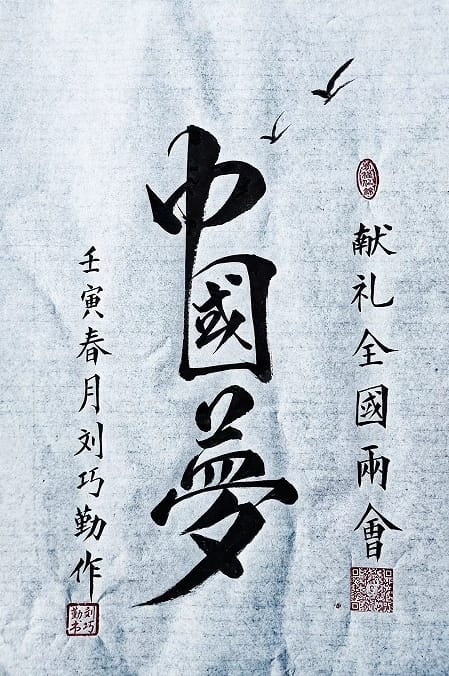 献礼全國兩會
中國夢
壬寅春月刘巧勤作
刘巧勤书